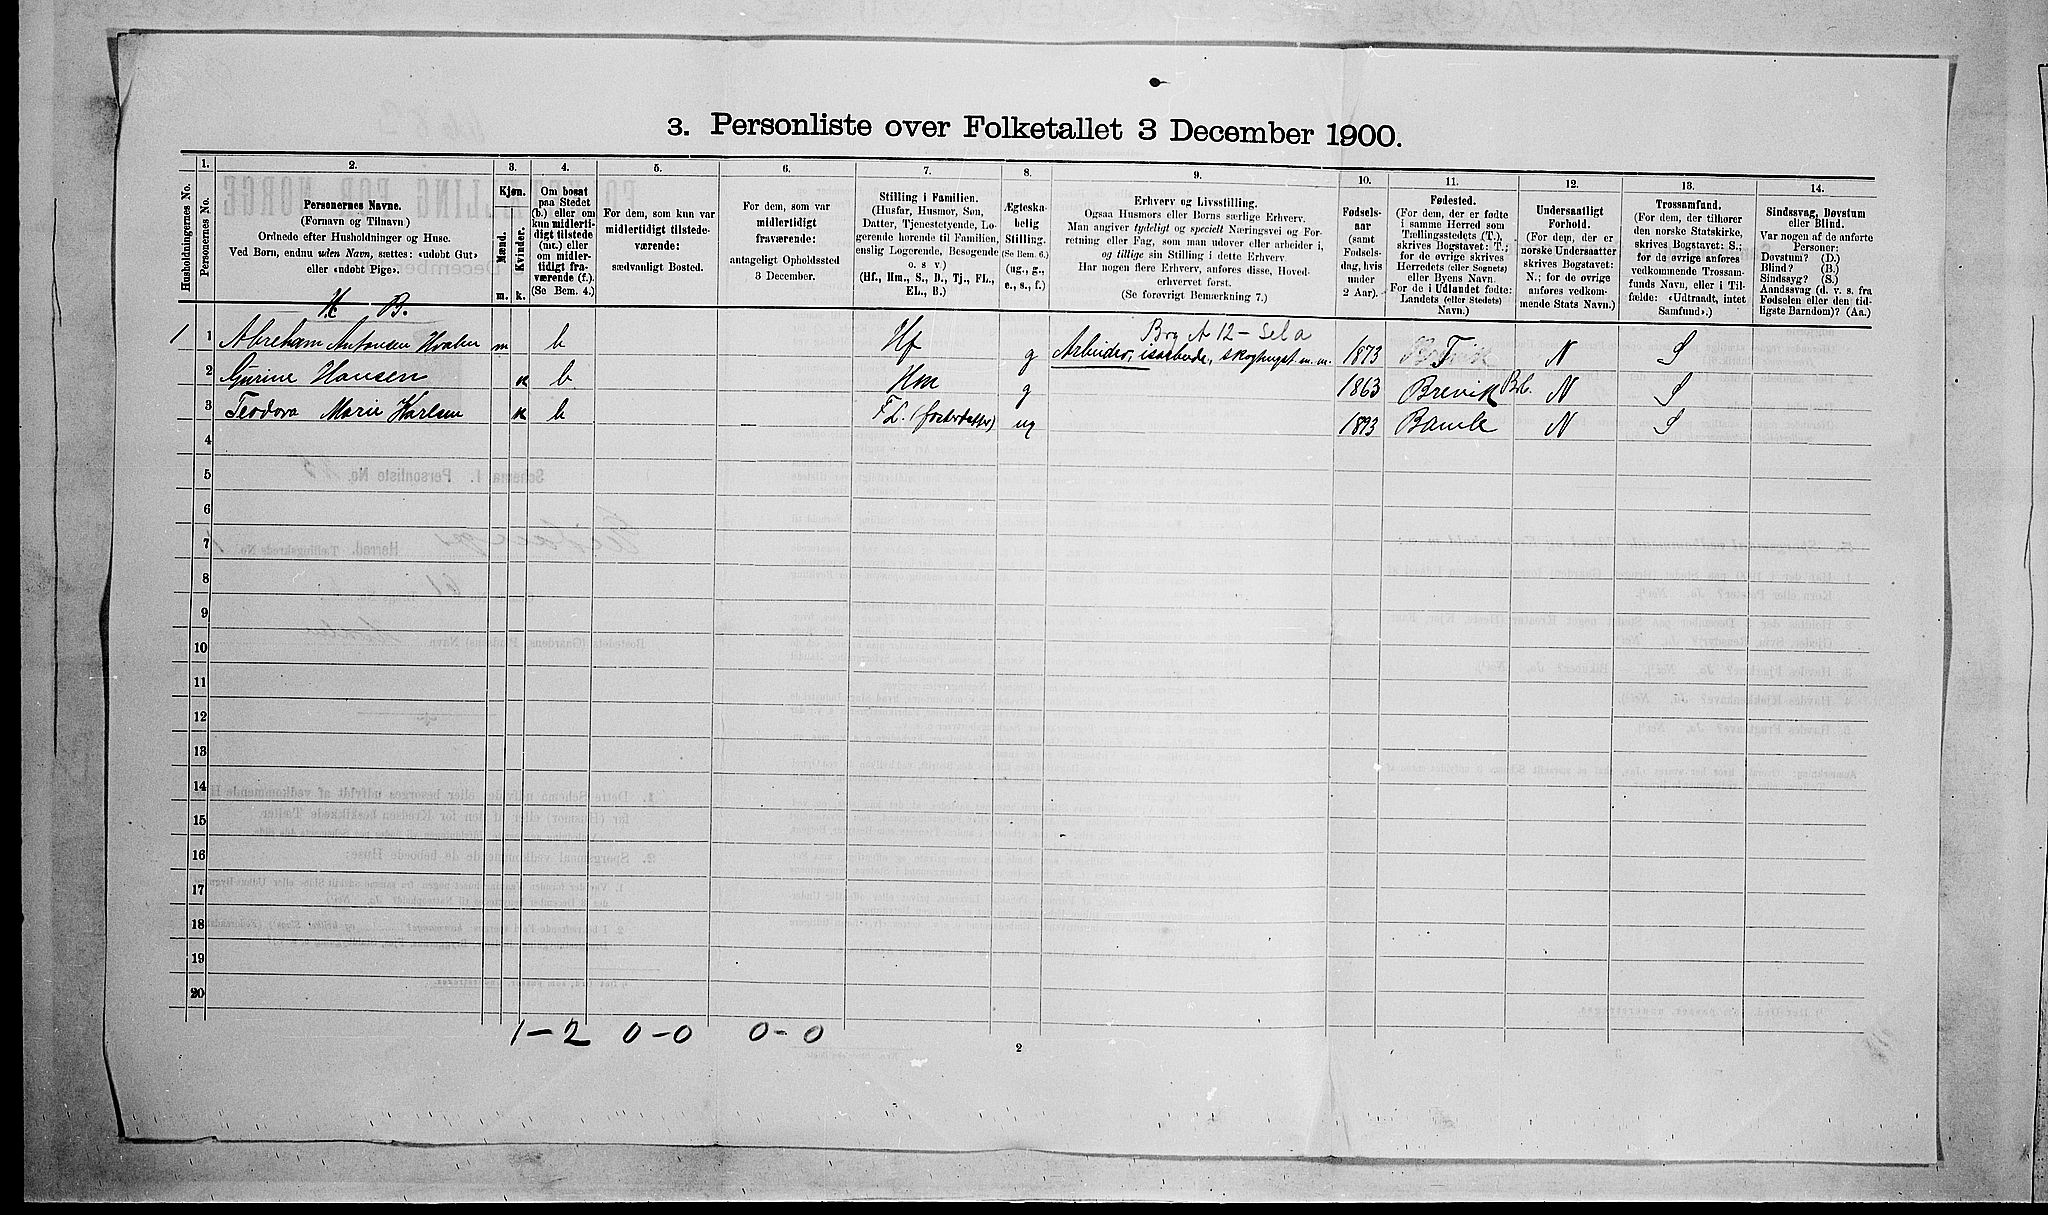 3. Personliste over Folketallet 3 December 1900.
1. 2. 3. 4. 5. 6. 7. 8. 9. 10. 11. 12. 13. 14.
Husholdningernes No.
Personernes No.
Personernes Navne.
(Fornavn og Tilnavn)
Ordnede efter Husholdninger og Huse.
Ved Børn, endnu uden Navn, sættes: «udøbt Gut»
eller «udøbt Pige».
Kjøn.
Mænd.
Kvinder.
m. k.
Om bosat
paa Stedet
(b.) eller om
kun midlerti-
digt tilstede
(mt.) eller
om midler-
tidigt fra-
værende (f.).
(Se Bem. 4.)
For dem, som kun var
midlertidigt tilstede-
værende:
sædvanligt Bosted.
For dem, som var
midlertidigt
fraværende:
antageligt Opholdssted
3 December.
Stilling i Familien.
(Husfar, Husmor, Søn,
Datter, Tjenestetyende, Lo-
gerende hørende til Familien,
enslig Logerende, Besøgende
o. s. v.)
(Hf., Hm., S., D., Tj., FL.,
EL., B.)
Ægteska-
belig
Stilling.
(Se Bem. 6.)
(ug., g.,
e., s., f.)
Erhverv og Livsstilling.
Ogsaa Husmors eller Børns særlige Erhverv.
Man angiver tydeligt og specielt Næringsvei og For-
retning eller Fag, som man udøver eller arbeider i,
og tillige sin Stilling i dette Erhverv.
Har nogen flere Erhverv, anføres disse, Hoved-
erhvervet først.
(Se forøvrigt Bemærkning 7.)
Fødsels-
aar
(samt
Fødsels-
dag, hvis
under
2 Aar).
Fødested.
(For dem, der er fødte
i samme Herred som
Tællingsstedets (T.),
skrives Bogstavet: T.;
for de øvrige skrives
Herredets (eller Sognets)
eller Byens Navn.
For de i Udlandet fødte:
Landets (eller Stedets)
Navn.)
Undersaatligt
Forhold.
(For dem, der er
norske Undersaatter
skrives Bogstavet:
N.; for de øvrige
anføres vedkom-
mende Stats Navn.)
Trossamfund.
(For dem, der tilhører
den norske Statskirke,
skrives Bogstavet: S.;
for de øvrige anføres
vedkommende Trossam-
funds Navn, eller i Til-
fælde: «Udtraadt, intet
Samfund».)
Sindssvag, Døvstum
eller Blind.
Var nogen af de anførte
Personer:
Døvstum? (D.)
Blind? (B.)
Sindssyg? (S.)
Aandssvag (d. v. s. fra
Fødselen eller den tid-
ligste Barndom)? (Aa.)
H. B.
Brg A 12 - sela
1 1 Abreham Antonsen Hvalen m b Hf g Arbeider, isarbeide, skoghugst m. m. 1873 T N S
2 Gurine Hansen k b Hm g 1863 Brevik Bb. N S
3 Teodora Marie Karlsen k b FL. (fosterdatter) ug 1893 Bamle N S
4
5
6
7
8
9
10
11
12
13
14
15
16
17
18
19
20
1-2 0-0 0-0
2